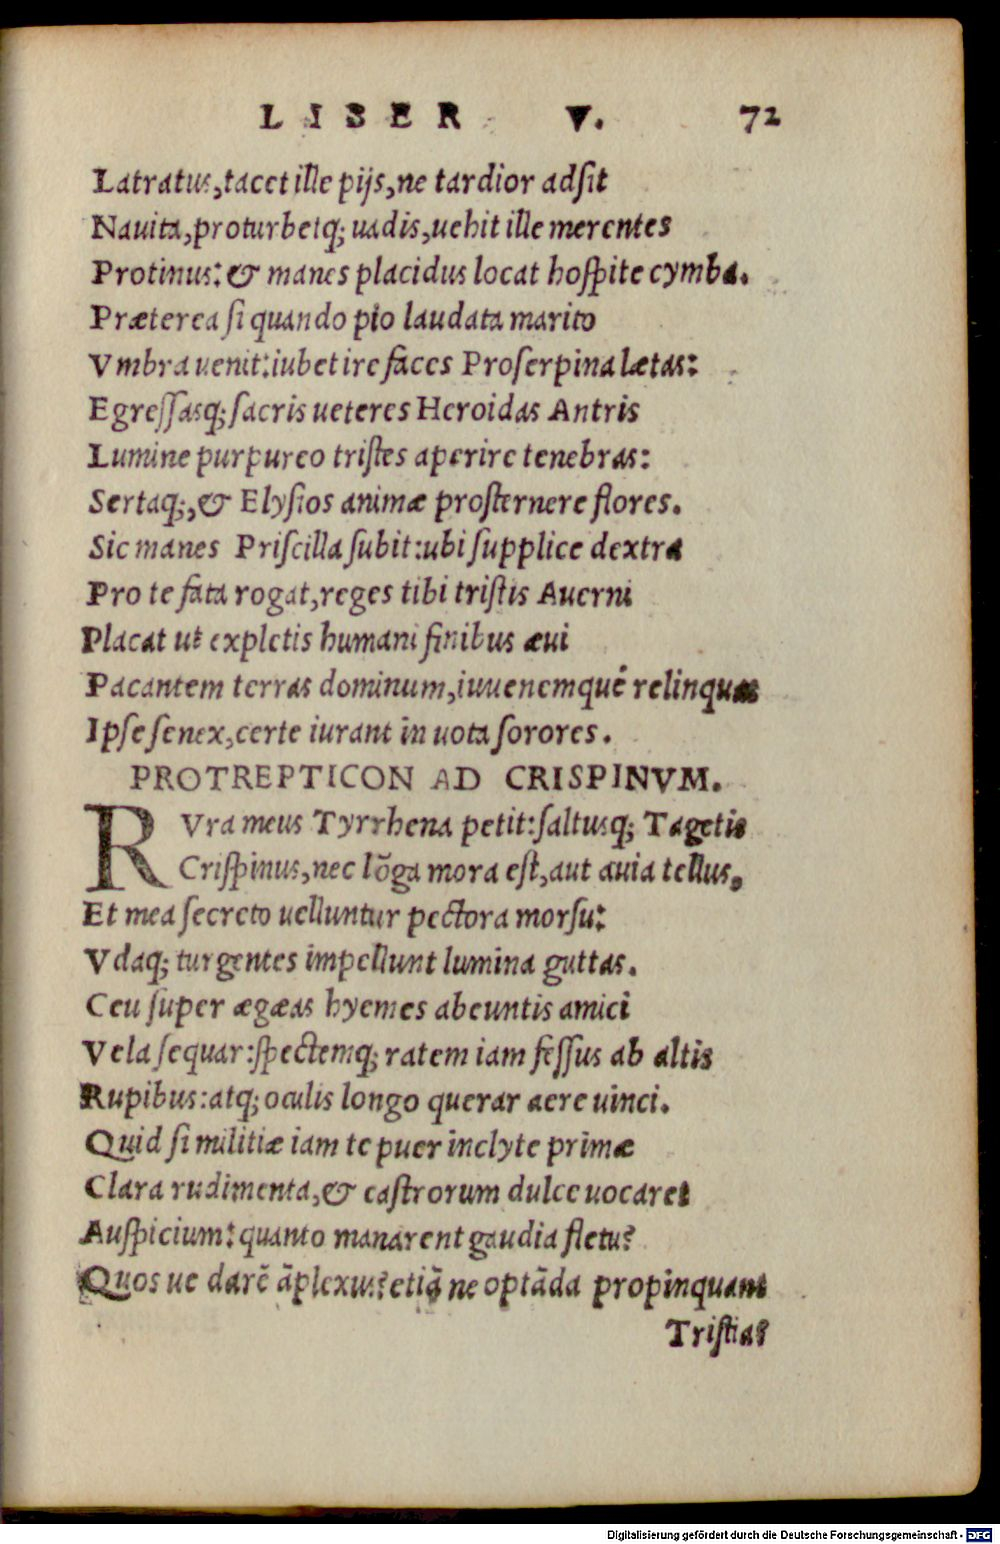 LIBER V. 72
Latratus,tacet ille pijs,ne tardior adſit
Nauita,proturbetq; uadis,uehit ille merentes
Protinus:& manes placidus locat hoſpite cymba.
Præterea ſi quando pio laudata marito
Vmbra uenit:iubet ire faces Proſerpina lætas:
Egreſſasq; ſacris ueteres Heroidas Antris
Lumine purpureo triſtes aperire tenebras:
Sertaq;,& Elyſios animæ proſternere flores.
Sic manes Priſcilla ſubit:ubi ſupplice dextra
Pro te fata rogat,reges tibi triſtis Auerni
Placat ut expletis humani finibus æui
Pacantem terras dominum,iuuenemqué relinquas
Ipſe ſenex,certe iurant in uota ſorores.
PROTREPTICON AD CRISPINVM.
RVra meus Tyrrhena petit:ſaltusq; Tagetis
Criſpinus,nec lōga mora eſt,aut auia tellus,
Et mea ſecreto uelluntur pectora morſu:
Vdaq; turgentes impellunt lumina guttas.
Ceu ſuper ægæas hyemes abeuntis amici
Vela ſequar:ſpectemq; ratem iam feſſus ab altis
Rupibus:atq; oculis longo querar aere uinci.
Quid ſi militiæ iam te puer inclyte primæ
Clara rudimenta,& caſtrorum dulce uocaret
Auſpicium: quanto manarent gaudia fletu?
Quos ue darē āplexus?etiā ne optāda propinquant
Triſtia?
Digitalisierung gefördert durch die Deutsche Forschungsgemeinschaft - DFG